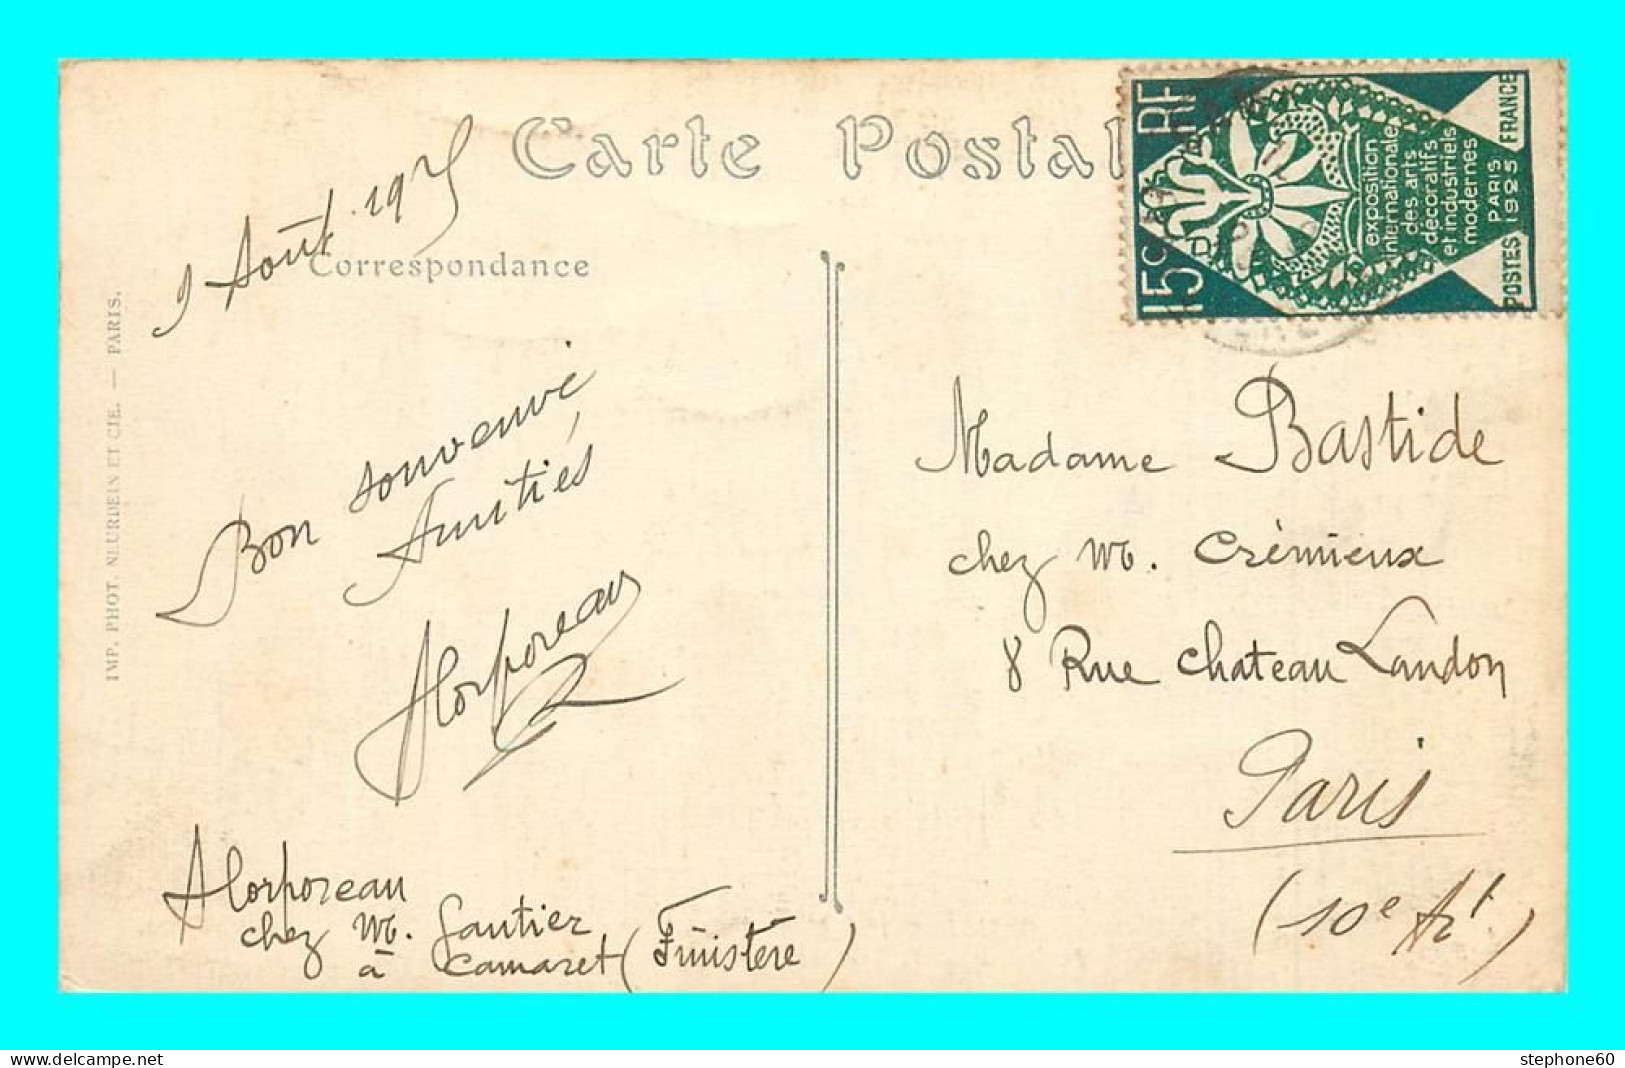 Carte Postale
Correspondance
9 Août 1925
Bon souvenir
Amitiés
AHorporeau
AHorporeau
chez M. Gautier
à Camaret (Finistère)
IMP. PHOT. NEURDEIN ET CIE. — PARIS.
RF
15c
exposition
internationale
des arts
décoratifs
et industriels
modernes
PARIS
1925
POSTES FRANCE
Madame Bastide
chez M. Crémieux
8 Rue Chateau Landon
Paris
(10e Art)
delcampe.net
stephone60